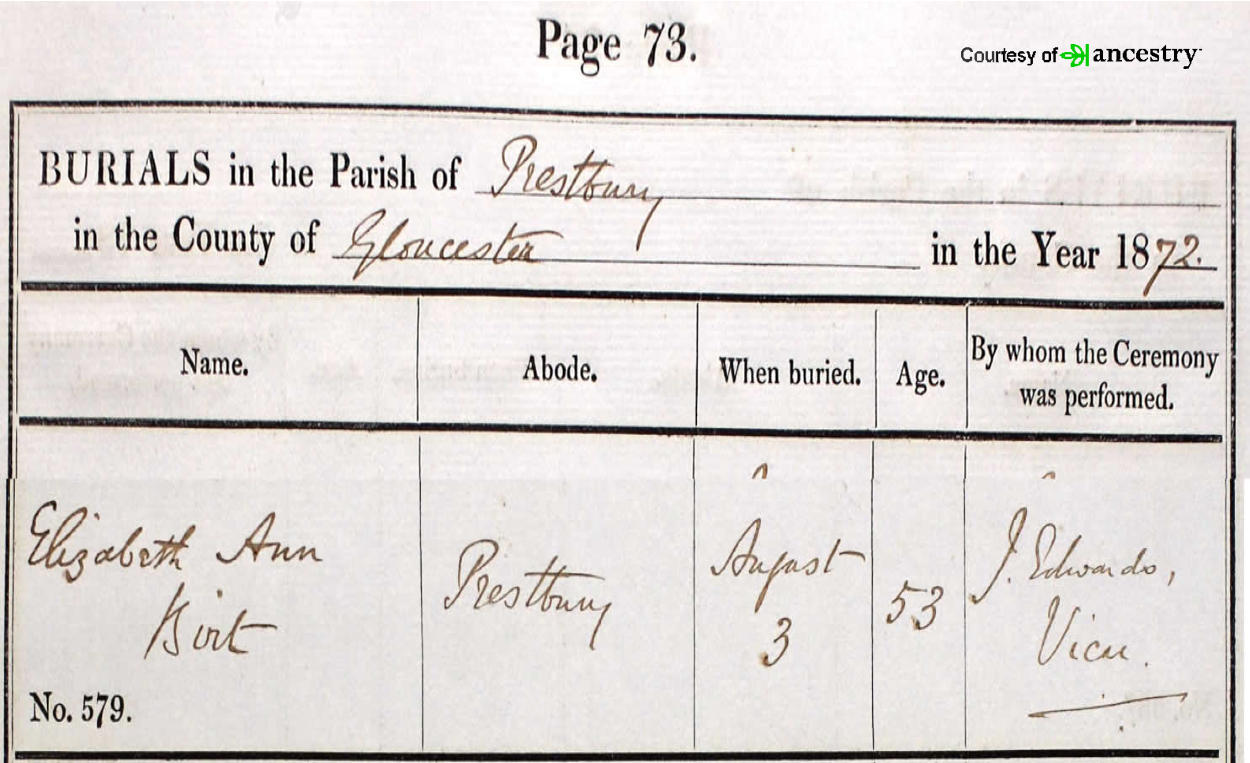 Page 73.
Courtesy of ancestry
BURIALS in the Parish of Prestbury
in the County of Gloucester in the Year 1872.
Name. Abode. When buried. Age. By whom the Ceremony was performed.
Elizabeth Ann
Birt
Prestbury
August
3
53
J. Edwards,
Vicar.
No. 579.